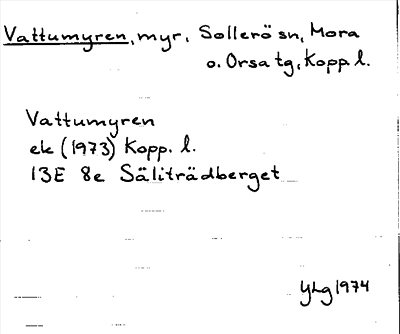 Vattumyren, myr, Sollerö sn, Mora
o. Orsa tg, Kopp. l.
Vattumyren
ek (1973) Kopp. l.
13E 8e Säliträdberget
YLg 1974